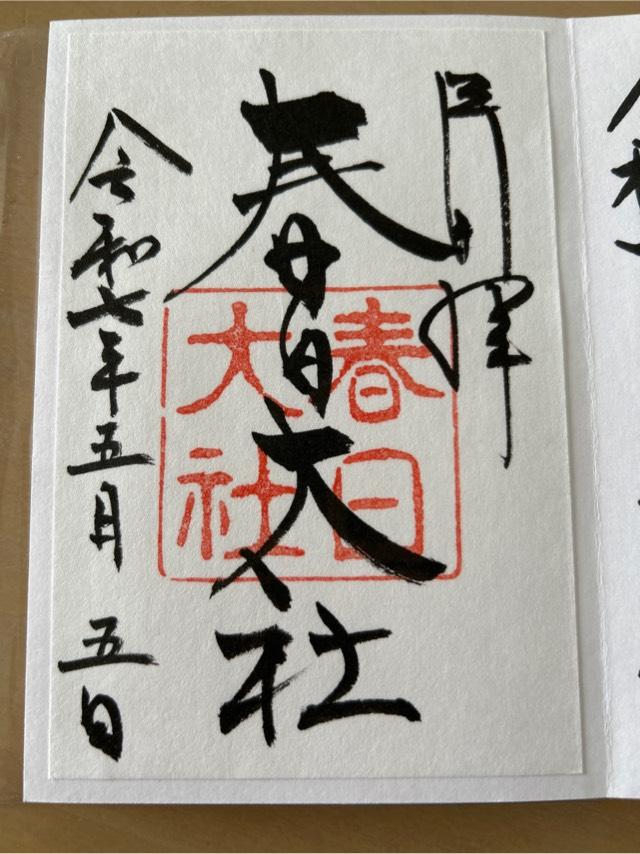 拝
春日大社
春日
大社
令和七年五月 五日